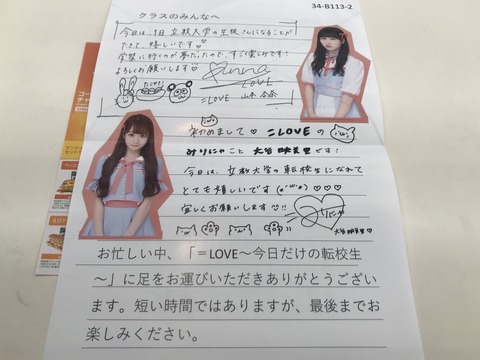 34-B113-2
クラスのみんなへ
今日は、1日立教大学の生徒さんになることが
できて、嬉しいです♡
学祭に行くのが夢だったので、すごく楽しみです!
よろしくお願いします♡
anna
=LOVE
=LOVE 山本杏奈
初めまして♡ =LOVEの
みりにゃこと 大谷映美里です!
今日は、立教大学の転校生になれて
とても嬉しいです ♡♡♡
宜しくお願いします!!
大谷映美里
お忙しい中、「=LOVE~今日だけの転校生
~」に足をお運びいただきありがとうござい
ます。短い時間ではありますが、最後までお
楽しみください。